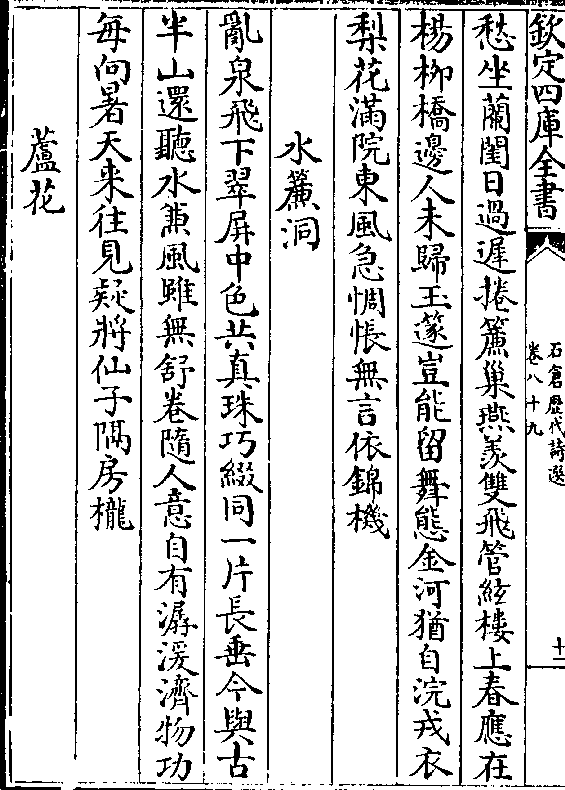 欽定四庫全書
石倉歷代詩選
卷八十九
十二
愁坐蘭閨日過遲捲簾巢燕羨雙飛管絃樓上春應在
楊柳橋邊人未歸玉篴豈能留舞態金河猶自浣戎衣
梨花滿院東風急惆悵無言依錦機
水簾洞
亂泉飛下翠屏中色共真珠巧綴同一片長垂今與古
半山還聽水兼風雖無舒卷隨人意自有潺湲濟物功
每向暑天来往見疑將仙子隔房櫳
蘆花